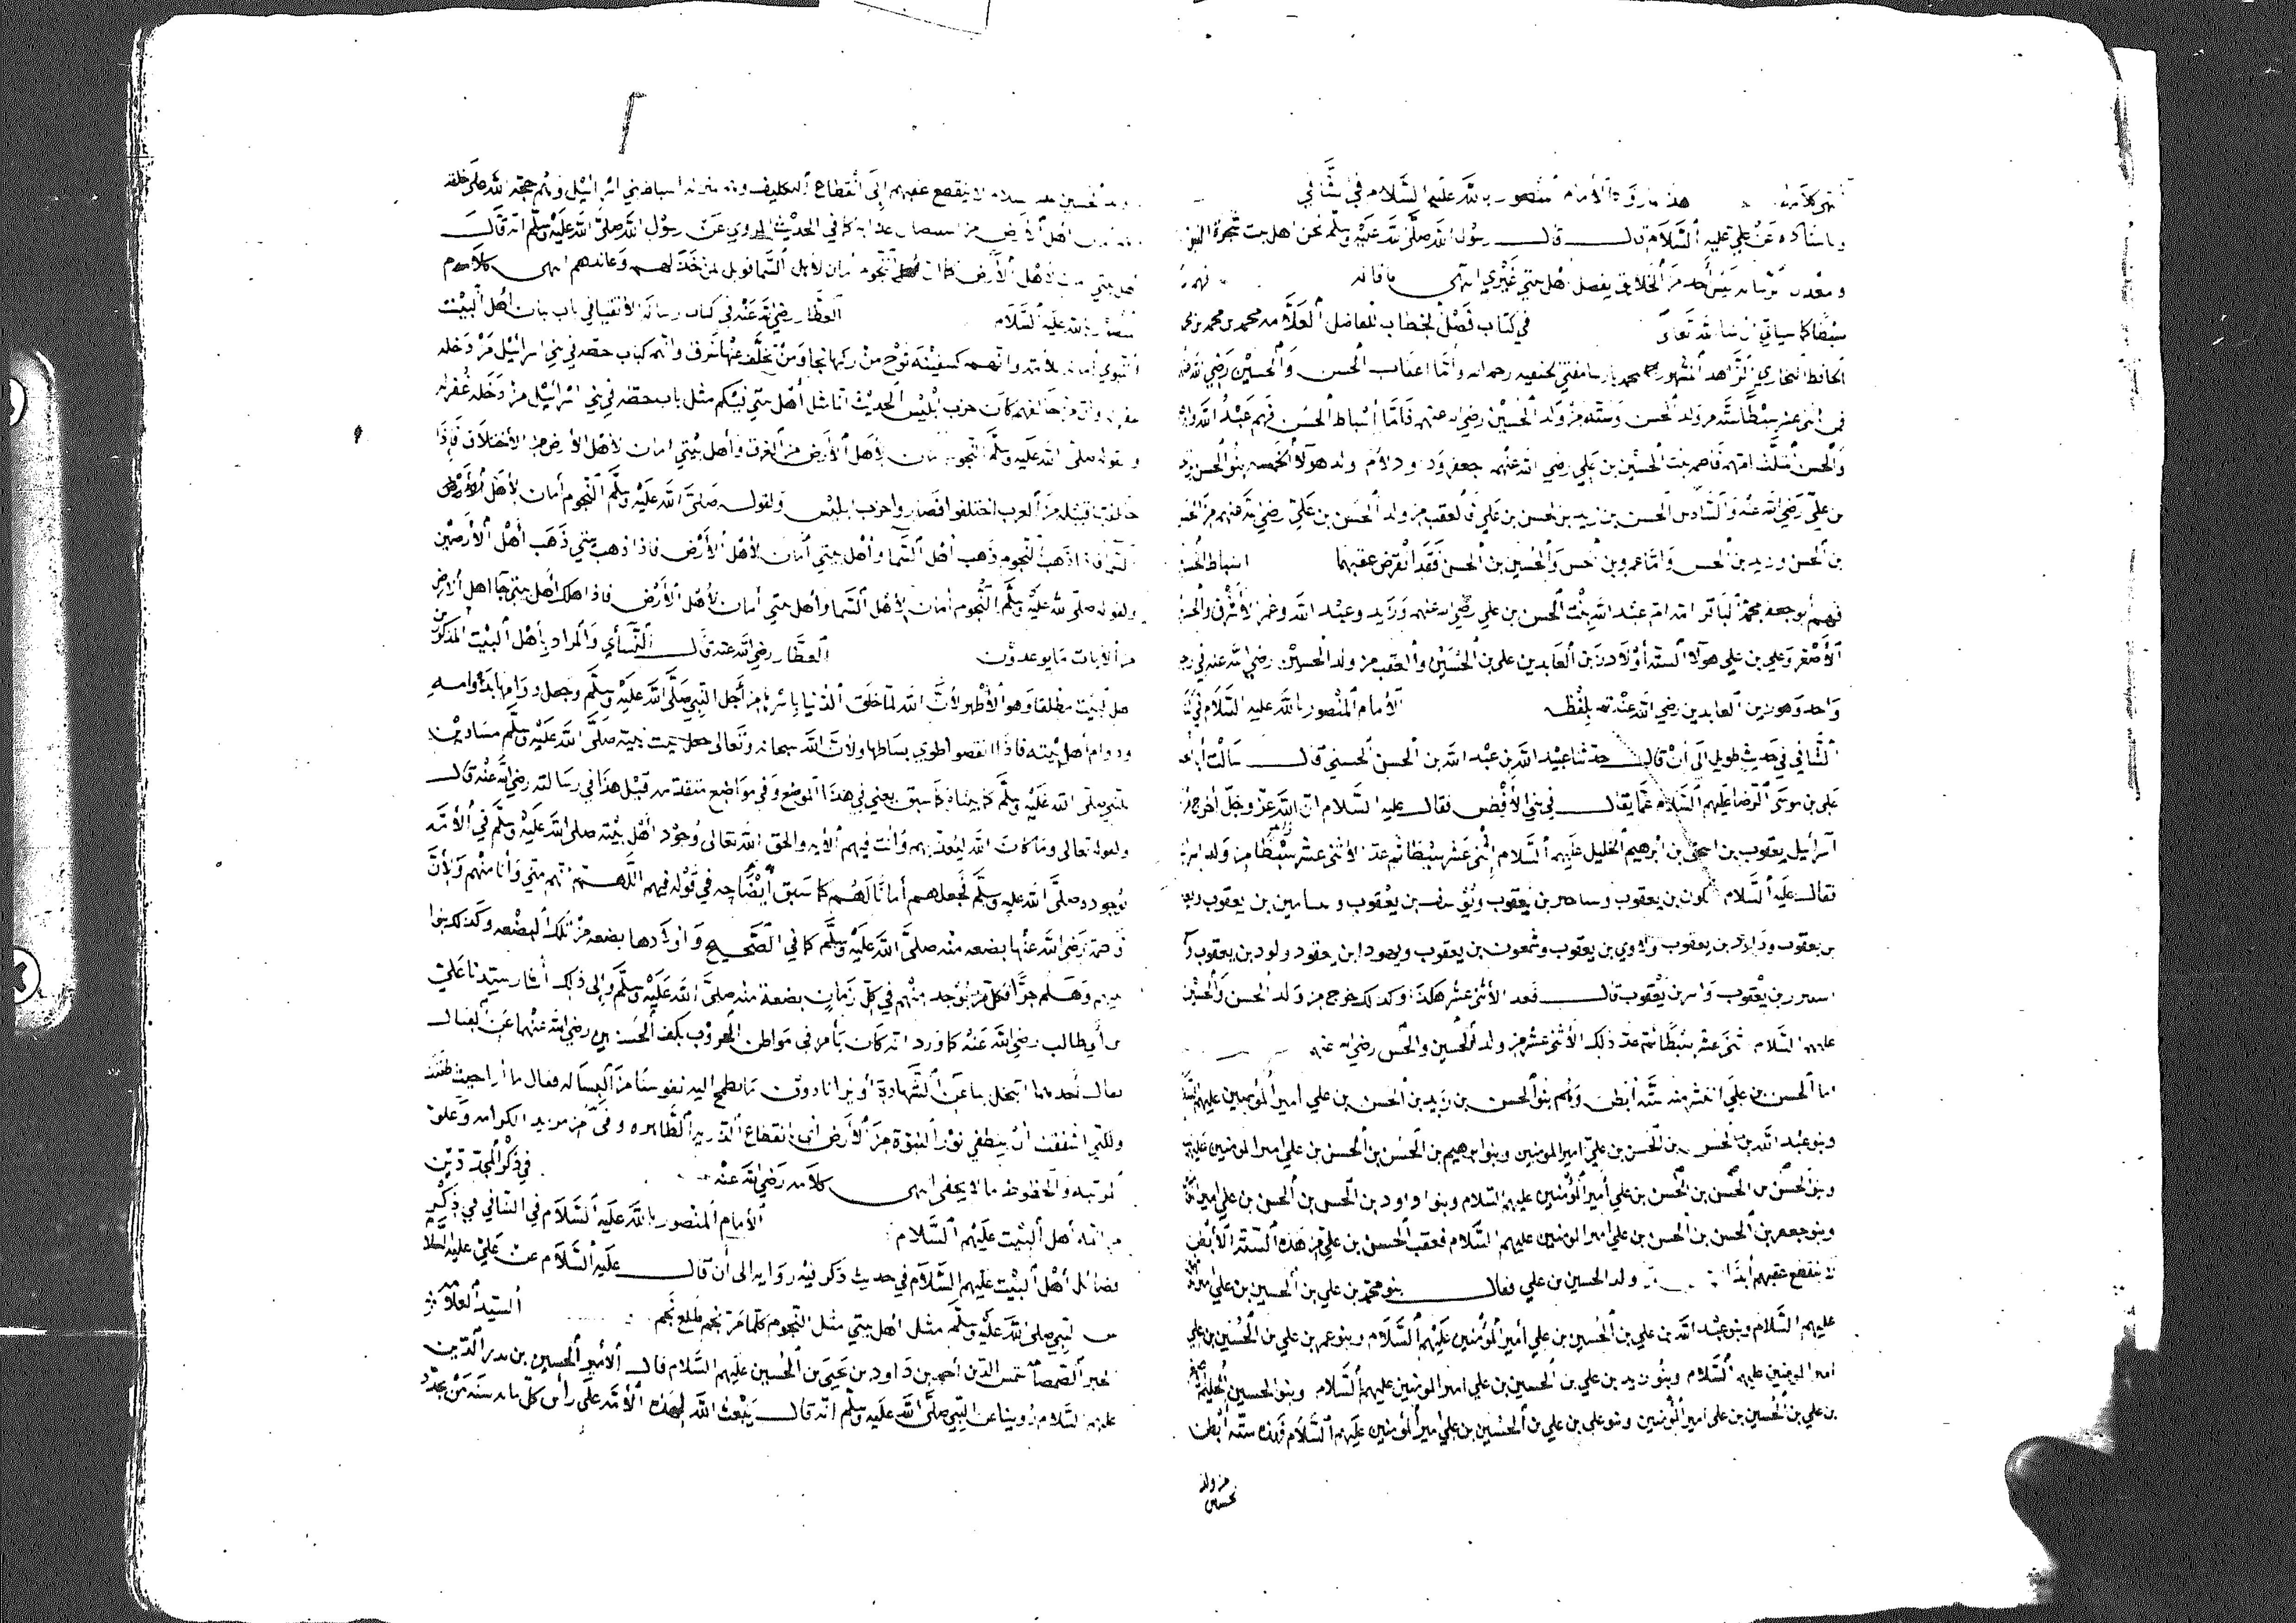 كلامه هذا ما رواه الإمام المنصور بالله عليه السلام في الشافي
وباسناده عن علي عليه السلام قال قال رسول الله صلى الله عليه وسلم نحن اهل بيت شجرة النبوة
ومعدن ليس أحد من الخلائق يفضل اهل بيتي غيري انتهى
سبطا كما سياتي ان شا الله تعالى في كتاب فصل الخطاب للفاضل العلامه محمد بن محمد بن محمد
الحافظ البخاري الزاهد المشهور بمحمد بارسا مفتي الحنفيه رحمه الله واما اعقاب الحسن والحسين رضي الله
اثنى عشر سبطا سته من ولد الحسن وسته من ولد الحسين رضي الله عنهم فاما أسباط الحسن فهم عبد الله
والحسن المثلث امهم فاطمه بنت الحسين بن علي رضي الله عنهم جعفر وداود لام ولد هولا الخمسه بنو الحسن بن
بن علي رضي الله عنه والسادس الحسن بن زيد بن الحسن بن علي فالعقب من ولد الحسن بن علي رضي الله عنهم من الحسن
بن الحسن وزيد بن الحسن واما عمرو بن الحسن والحسين بن الحسن فقد انقرض عقبهما اسباط الحسين
فهم أبو جعفر محمد الباقر امه ام عبد الله بنت الحسن بن علي رضي الله عنهم وزيد وعبد الله وعمر الأشرف والحسين
الأصغر وعلي بن علي هولا السته أولاد زين العابدين علي بن الحسين والعقب من ولد الحسين رضي الله عنه في رجل
واحد وهو زين العابدين رضي الله عنه بلفظه الإمام المنصور بالله عليه السلام في
الشافي في حديث طويل الى أن قال حدثنا عبيد الله بن عبد الله بن الحسن الحسني قال سالت أبا
علي بن موسى الرضا عليهم السلام عما يقال في بني الأفطس فقال عليه السلام ان الله عز وجل أخرج من
اسرائيل يعقوب بن اسحق بن ابرهيم الخليل عليهم السلام اثنى عشر سبطا ثم عد الاثنى عشر سبطا من ولد
فقال عليه السلام بن يعقوب بن يعقوب ويوسف بن يعقوب وبنيامين بن يعقوب
بن يعقوب بن يعقوب ولاوي بن يعقوب وشمعون بن يعقوب ويهودا بن يعقوب بن يعقوب
بن يعقوب بن يعقوب قال فعد الأثنى عشر هكذا وكذلك يخرج من ولد الحسن والحسين
عليهم السلام اثنى عشر سبطا ثم عد ذلك الأثنى عشر من ولد الحسين والحسن رضي الله عنهم
اما الحسن بن علي فانتشر منه سته أبطن وهم بنو الحسن بن زيد بن الحسن بن علي امير المؤمنين عليهم السلام
وبنو عبد الله بن الحسن بن الحسن بن علي امير المومنين وبنو ابرهيم بن الحسن بن الحسن بن علي امير المومنين عليهم
وبنو الحسن بن الحسن بن الحسن بن علي أمير المؤمنين عليهم السلام وبنو داود بن الحسن بن الحسن بن علي امير
وبنو جعفر بن الحسن بن الحسن بن علي امير المومنين عليهم السلام فعقب الحسن بن علي من هذه السته الأبطن
لا ينقطع عقبهم أبدا ولد الحسين بن علي فقال بنو محمد بن علي بن الحسين بن علي
عليهم السلام وبنو عبد الله بن علي بن الحسين بن علي أمير المؤمنين عليهم السلام وبنو عمر بن علي بن الحسين بن علي
امير المومنين عليهم السلام وبنو زيد بن علي بن الحسين بن علي امير المومنين عليهم السلام وبنو الحسين
بن علي بن الحسين بن علي امير المؤمنين وبنو علي بن علي بن الحسين بن علي امير المؤمنين عليهم السلام فهذه سته ابطن
من ولد
الحسين
ولد الحسين عليه السلام لا ينقطع عقبهم إلى انقطاع التكليف وانه منزله اسباط بني اسرائيل وهم حجه الله على خلقه
أهل الأرض من كما في الحديث المروي عن رسول الله صلى الله عليه وسلم انه قال
أهل بيتي لأهل الأرض كما ان النجوم امان لأهل السما فويل لمن خذلهم وعاندهم انتهى كلامه
المنصور بالله عليه السلام العطار رضي الله عنه في كتاب رساله الأتقيا في باب بيان أهل البيت
النبوي أمان لأمته وانهم كسفينه نوح من ركبها نجا ومن تخلف عنها غرق وانهم كباب حطه في بني اسرائيل من دخله
غفر وان من خالفهم كان حزب ابليس الحديث انما مثل أهل بيتي فيكم مثل باب حطه في بني اسرائيل من دخله غفر له
ولقوله صلى الله عليه وسلم النجوم امان لأهل الأرض من الغرق وأهل بيتي امان لأهل الأرض من الأختلاف فإذا
خالفتها قبيله من العرب اختلفوا فصاروا حزب ابليس ولقوله صلى الله عليه وسلم النجوم أمان لأهل
السما فاذا ذهبت النجوم ذهب اهل السما وأهل بيتي أمان لأهل الأرض فاذا ذهب بيتي ذهب أهل الأرض
ولقوله صلى الله عليه وسلم النجوم أمان لأهل السما وأهل بيتي أمان لأهل الأرض فاذا هلك أهل بيتي جا اهل الارض
من الايات ما يوعدون العطار رضي الله عنه قال السناي والمراد بأهل البيت المذكورين
اهل البيت مطلقا وهو الأظهر لأن الله لما خلق الدنيا باسرها من أجل النبي صلى الله عليه وسلم وجعل دوامها بدوامه
ودوام أهل بيته فاذا انقضوا طوي بساطها ولأن الله سبحانه وتعالى جعل بيت نبيه صلى الله عليه وسلم مساوين
للنبي صلى الله عليه وسلم كما بيناه كما سبق يعني في هذا الموضع وفي مواضع متقدمه قبل هذا في رسالته رضي الله عنه قال
ولقوله تعالى وما كان الله ليعذبهم وأنت فيهم الأيه والحق الله تعالى وجود أهل بيته صلى الله عليه وسلم في الأمه
بوجوده صلى الله عليه وسلم فجعلهم أمانا لهم كما سبق أيضا في قوله فيهم اللهم انهم مني وأنا منهم ولأن
فاطمة رضي الله عنها بضعه منه صلى الله عليه وسلم كما في الصحيح وأولادها بضعه من تلك البضعه وكذلك بنوا
بنيهم وهلم جرا فكل من يوجد منهم في كل زمان بضعة منه صلى الله عليه وسلم وإلى ذلك أشار سيدنا علي
بن أبي طالب رضي الله عنه كما ورد انه كان يأمر في مواطن الحروب بكف الحسنين رضي الله عنهما عن القتال
فقال أحدهما اتبخل بنا عن الشهادة أو ترانا دون ما تطمح اليه نفوسنا من البساله فقال ما أنا حيث ظننت
ولكني اشفقت أن ينطفي نور النبوة من الأرض أي انقطاع الذريه الطاهره من مزيد الكرامه وعلو
المرتبه والحظوظ ما لا يخفى انتهى كلامه رضي الله عنه في ذكر المجددين
من ائمه أهل البيت عليهم السلام الأمام المنصور بالله عليه السلام في الشافي في ذكر
فضائل أهل البيت عليهم السلام في حديث ذكر فيه روايه الى أن قال عليه السلام عن علي عليه السلام
عن النبي صلى الله عليه وسلم مثل اهل بيتي مثل النجوم كلما مر نجم طلع نجم السيد العلامه
شمس الدين أحمد بن داود بن يحيى بن الحسين عليهم السلام قال الأمير الحسين بن بدر الدين
عليهم السلام روينا عن النبي صلى الله عليه وسلم انه قال يبعث الله لهذه الأمه على رأس كل مايه سنه من يجدد